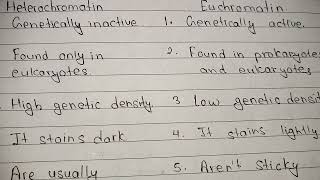 Heterochromatin Euchromatin
Genetically inactive 1. Genetically active.
Found only in 2. Found in prokaryotes
eukaryotes and eukaryotes
High genetic density. 3 Low genetic densit
It stains dark 4. It stains lightly
Are usually 5. Aren't sticky